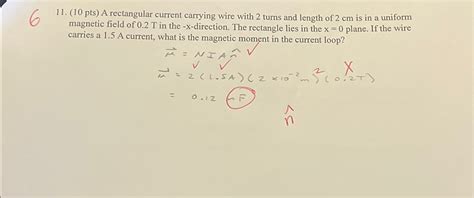 6
11. (10 pts) A rectangular current carrying wire with 2 turns and length of 2 cm is in a uniform
magnetic field of 0.2 T in the -x-direction. The rectangle lies in the x = 0 plane. If the wire
carries a 1.5 A current, what is the magnetic moment in the current loop?
μ⃗ = N I A n̂ ✓
μ⃗ = 2 (1.5A) (2 ×10⁻² m)² (0.2T) X
= 0.12 mF
n̂